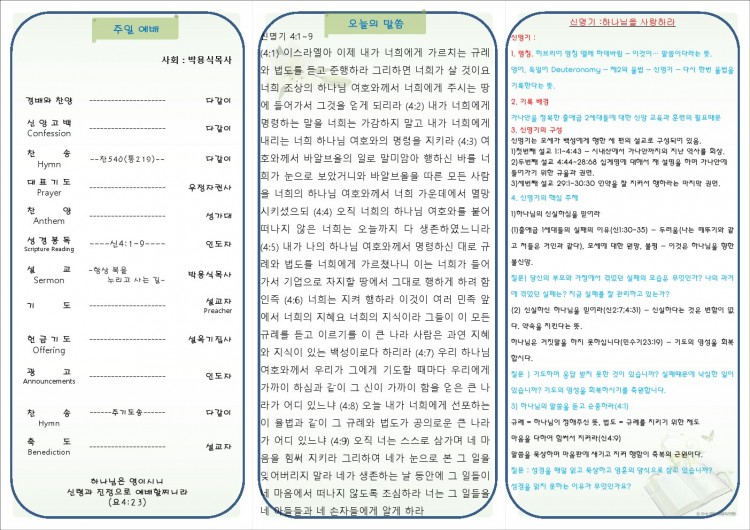 주일 예배
사회 : 박용식목사
경배와 찬양 ---------------------- 다같이
신 앙 고 백 ---------------------- 다같이
Confession
찬 송 --찬540(통219)-- 다같이
Hymn
대 표 기 도 ---------------------- 우정자권사
Prayer
찬 양 ---------------------- 성가대
Anthem
성 경 봉 독 ----신4:1-9---- 인도자
Scripture Reading
설 교 -항상 복을 박용식목사
Sermon 누리고 사는 길-
기 도 ---------------------- 설교자
Preacher
헌 금 기 도 ---------------------- 설옥기집사
Offering
광 고 ---------------------- 인도자
Announcements
찬 송 ------주기도송------ 다같이
Hymn
축 도 ---------------------- 설교자
Benediction
하나님은 영이시니
신령과 진정으로 예배할찌니라
(요4:23)
오늘의 말씀
신명기 4:1~9
(4:1) 이스라엘아 이제 내가 너희에게 가르치는 규례
와 법도를 듣고 준행하라 그리하면 너희가 살 것이요
너희 조상의 하나님 여호와께서 너희에게 주시는 땅
에 들어가서 그것을 얻게 되리라 (4:2) 내가 너희에게
명령하는 말을 너희는 가감하지 말고 내가 너희에게
내리는 너희 하나님 여호와의 명령을 지키라 (4:3) 여
호와께서 바알브올의 일로 말미암아 행하신 바를 너
희가 눈으로 보았거니와 바알브올을 따른 모든 사람
을 너희의 하나님 여호와께서 너희 가운데에서 멸망
시키셨으되 (4:4) 오직 너희의 하나님 여호와를 붙어
떠나지 않은 너희는 오늘까지 다 생존하였느니라
(4:5) 내가 나의 하나님 여호와께서 명령하신 대로 규
례와 법도를 너희에게 가르쳤나니 이는 너희가 들어
가서 기업으로 차지할 땅에서 그대로 행하게 하려 함
인즉 (4:6) 너희는 지켜 행하라 이것이 여러 민족 앞
에서 너희의 지혜요 너희의 지식이라 그들이 이 모든
규례를 듣고 이르기를 이 큰 나라 사람은 과연 지혜
와 지식이 있는 백성이로다 하리라 (4:7) 우리 하나님
여호와께서 우리가 그에게 기도할 때마다 우리에게
가까이 하심과 같이 그 신이 가까이 함을 얻은 큰 나
라가 어디 있느냐 (4:8) 오늘 내가 너희에게 선포하는
이 율법과 같이 그 규례와 법도가 공의로운 큰 나라
가 어디 있느냐 (4:9) 오직 너는 스스로 삼가며 네 마
음을 힘써 지키라 그리하여 네가 눈으로 본 그 일을
잊어버리지 말라 네가 생존하는 날 동안에 그 일들이
네 마음에서 떠나지 않도록 조심하라 너는 그 일들을
네 아들들과 네 손자들에게 알게 하라
신명기 :하나님을 사랑하라
신명기 :
1, 명칭, 히브리어 명칭 엘레 하데바림 - 이것이… 말씀이다라는 뜻,
영어, 독일어 Deuteronomy - 제2의 율법 - 신명기 - 다시 한번 율법을
기록한다는 뜻.
2. 기록 배경
가나안을 정복한 출애굽 2세대들에 대한 신앙 교육과 훈련의 필요때문
3. 신명기의 구성
신명기는 모세가 백성에게 행한 세 편의 설교로 구성되어 있음.
1)첫번째 설교 1:1-4:43 - 시내산에서 가나안까지의 지난 역사를 회상.
2)두번째 설교 4:44-28:68 십계명에 대해서 재 설명을 하며 가나안에
들어가기 위한 규율과 권면.
3)세번째 설교 29:1-30:30 언약을 잘 지켜서 행하라는 마지막 권면.
4. 신명기의 핵심 주제
1)하나님의 신실하심을 믿어라
(1)출애굽 1세대들의 실패의 이유(신1:30-35) - 두려움(나는 메뚜기와 같
고 저들은 거인과 같다), 모세에 대한 원망, 불평 - 이것은 하나님을 향한
불신앙.
질문) 당신의 부모와 가정에서 겪었던 실패의 모습은 무엇인가? 나의 과거
에 겪었던 실패는? 지금 실패를 잘 관리하고 있는가?
(2) 신실하신 하나님을 믿어라(신2:7;4:31) - 신실하다는 것은 변함이 없
다. 약속을 지킨다는 뜻.
하나님은 거짓말을 하지 못하십니다(민수기23:19) - 기도의 영성을 회복
합시다.
질문 ) 기도하며 응답 받지 못한 것이 있습니까? 실패때문에 낙심한 일이
있습니까? 기도의 영성을 회복하시기를 축원합니다.
3) 하나님의 말씀을 듣고 순종하라(4:1)
규례 = 하나님이 정해주신 뜻, 법도 = 규례를 지키기 위한 제도
마음을 다하여 힘써서 지키라(신4:9)
말씀을 묵상하며 마음판에 새기고 지켜 행함이 축복의 근원이다.
질문 : 성경을 매일 읽고 묵상하고 영혼의 양식으로 삼고 있습니까?
성경을 읽지 못하는 이유가 무엇인가요?